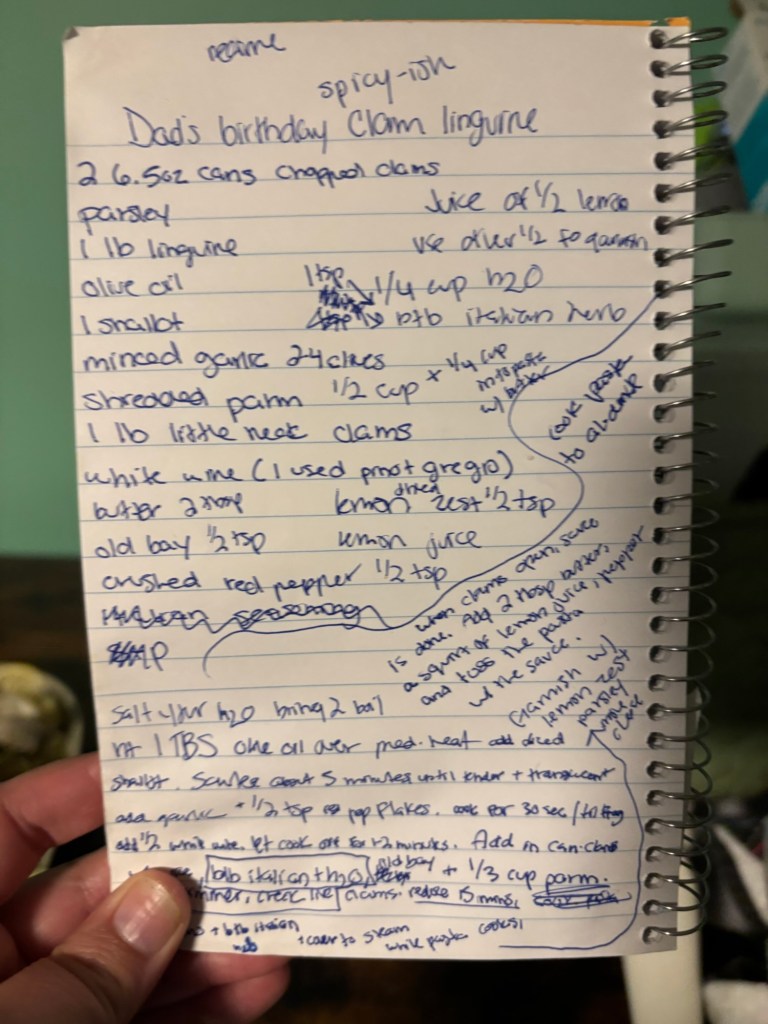 spicy-ish
Dad's birthday Clam linguine
2 6.5oz cans chopped clams
parsley
Juice of 1/2 lemon
1 lb linguine
use other 1/2 to garnish
olive oil
1 tsp
1/4 cup h2O
1 shallot
btb italian herb
minced garlic 2 4 cloves
shredded parm 1/2 cup + 1/4 cup
into pasta
w/ butter
1 lb little neck clams
cook pasta
to al-dente
white wine (I used pinot gregio)
butter 2 tbsp
lemon dried zest 1/2 tsp
old bay 1/2 tsp
lemon juice
crushed red pepper 1/2 tsp
seasoning
when clams open, sauce
is done. Add 2 tbsp butter,
a squirt of lemon juice, pepper
and toss the pasta
w/ the sauce.
Garnish w/
lemon zest
parsley
whole
clams
salt your h2O bring 2 boil
ht 1 TBS olive oil over med. heat add diced
shallot. Saute about 5 minutes until tender + translucent
add garlic + 1/2 tsp pep flakes. cook for 30 sec/
add 1/2 white wine. let cook off for 1-2 minutes. Add in can-clams
btb italian + h2O
old bay
+ 1/3 cup parm.
clams. reduce 15 mins,
+ btb italian
+ cover to steam
while pasta cooks